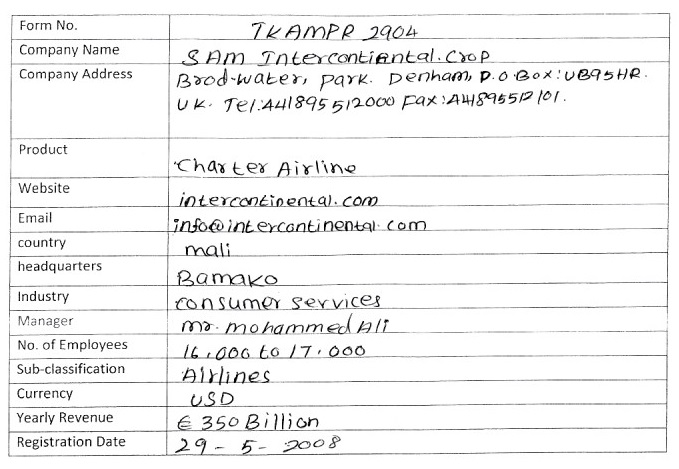 Form No. TKAMPR 2904
Company Name SAM Intercontiental.Crop
Company Address Brod-water, park. Denham, P.O.Box:UB95HR.
UK. Tel:441895512000 Fax:441895512101.
Product Charter Airline
Website intercontinental.com
Email info@intercontinental.com
country mali
headquarters Bamako
Industry consumer services
Manager mr. mohammed Ali
No. of Employees 16,000 to 17.000
Sub-classification Airlines
Currency USD
Yearly Revenue € 350 Billion
Registration Date 29-5-2008